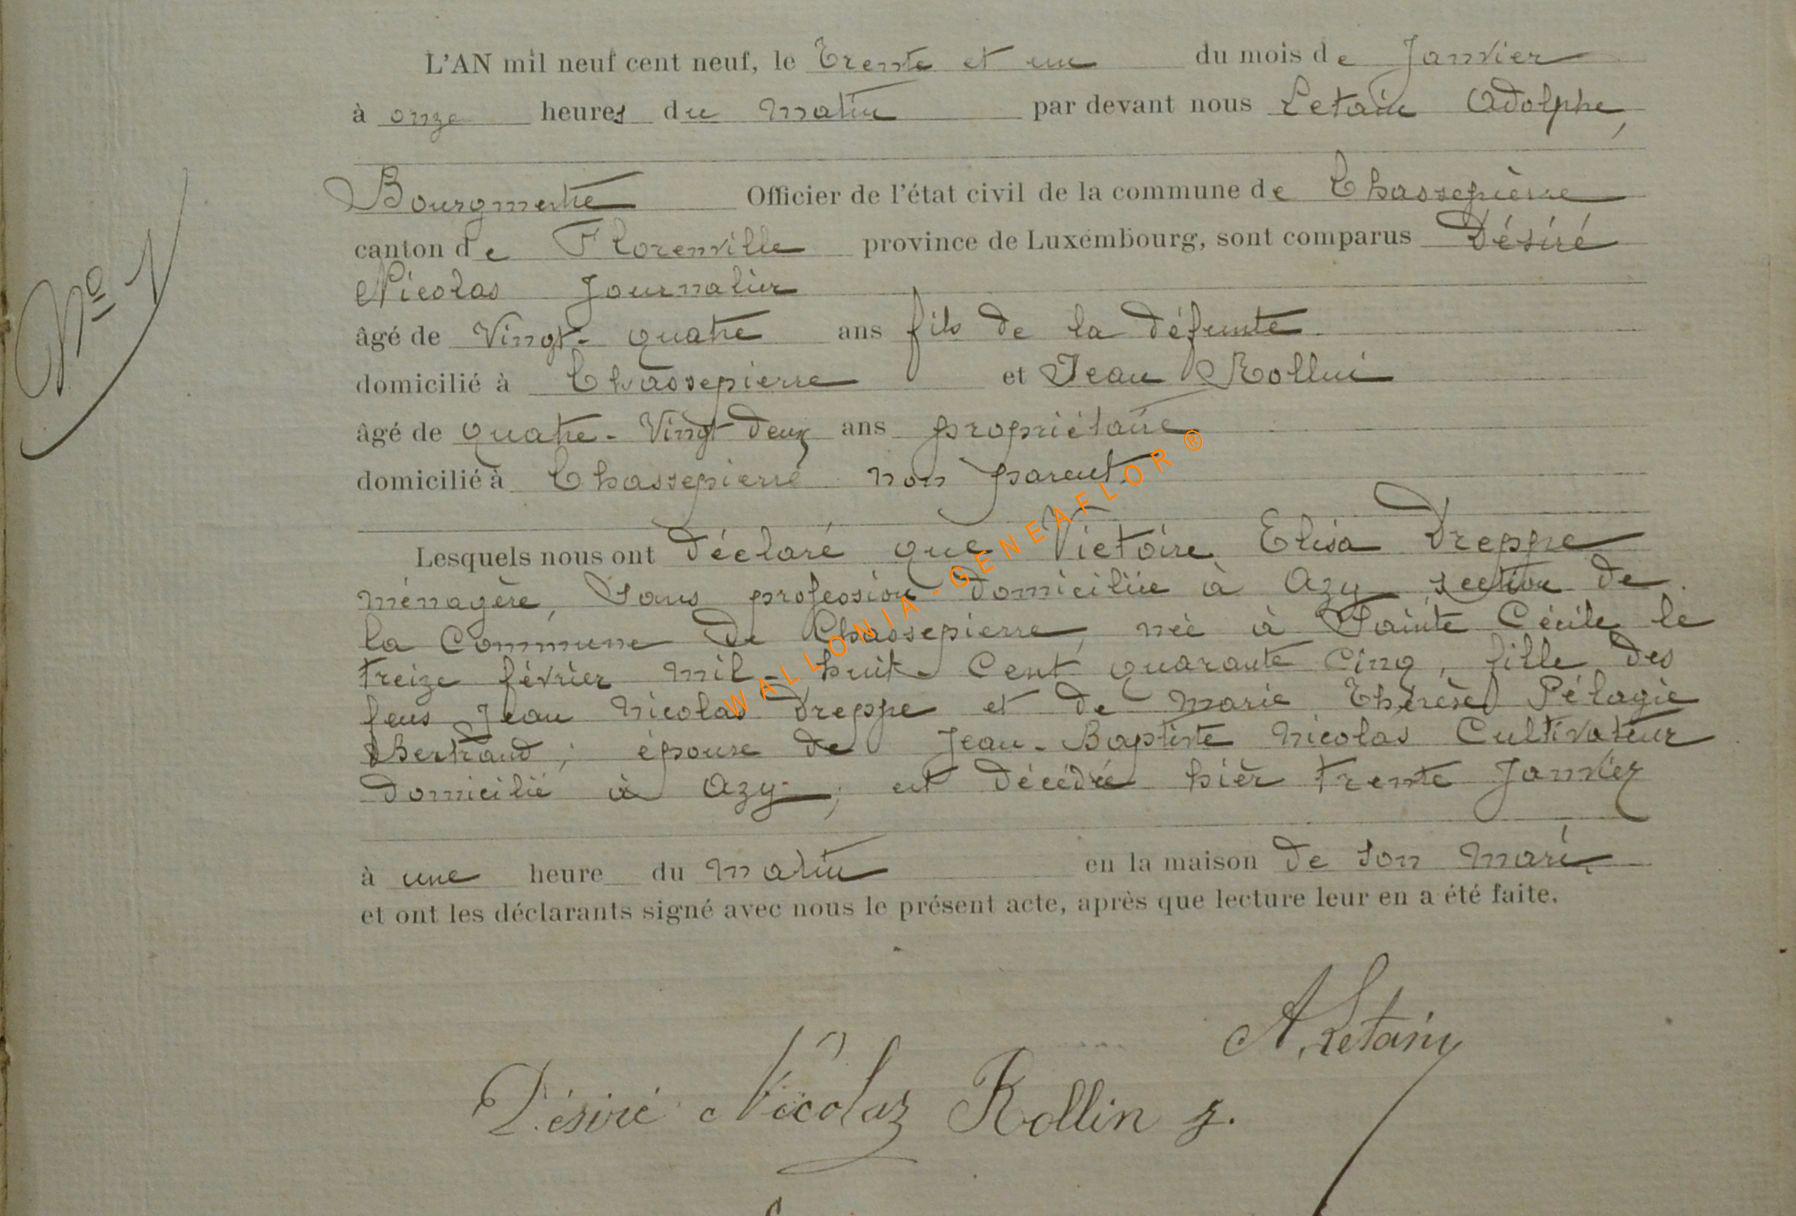 L'AN mil neuf cent neuf, le Trente et un du mois de Janvier
à onze heures du matin par devant nous Letain Adolphe,
Bourgmestre Officier de l'état civil de la commune de Chassepierre
canton de Florenville province de Luxembourg, sont comparus Désiré
Nicolas Journalier
âgé de Vingt-quatre ans fils de la défunte
domicilié à Chassepierre et Jean Rollin
âgé de quatre-Vingt deux ans propriétaire
domicilié à Chassepierre non parent.
Lesquels nous ont déclaré que Victoire Elisa Dreppe
ménagère, Sans profession domiciliée à Azy section de
la Commune de Chassepierre, née à Sainte Cécile le
treize février mil-huit-cent quarante cinq, fille des
feus Jean Nicolas Dreppe et de Marie Thérèse Pélagie
Bertrand, épouse de Jean-Baptiste Nicolas Cultivateur
domicilié à Azy, est décédée hièr trente Janvier
à une heure du matin en la maison de son mari,
et ont les déclarants signé avec nous le présent acte, après que lecture leur en a été faite.
Nº 1
WALLONIA-GENEAFLOR®
A. Letain
Désiré Nicolas Rollin J.